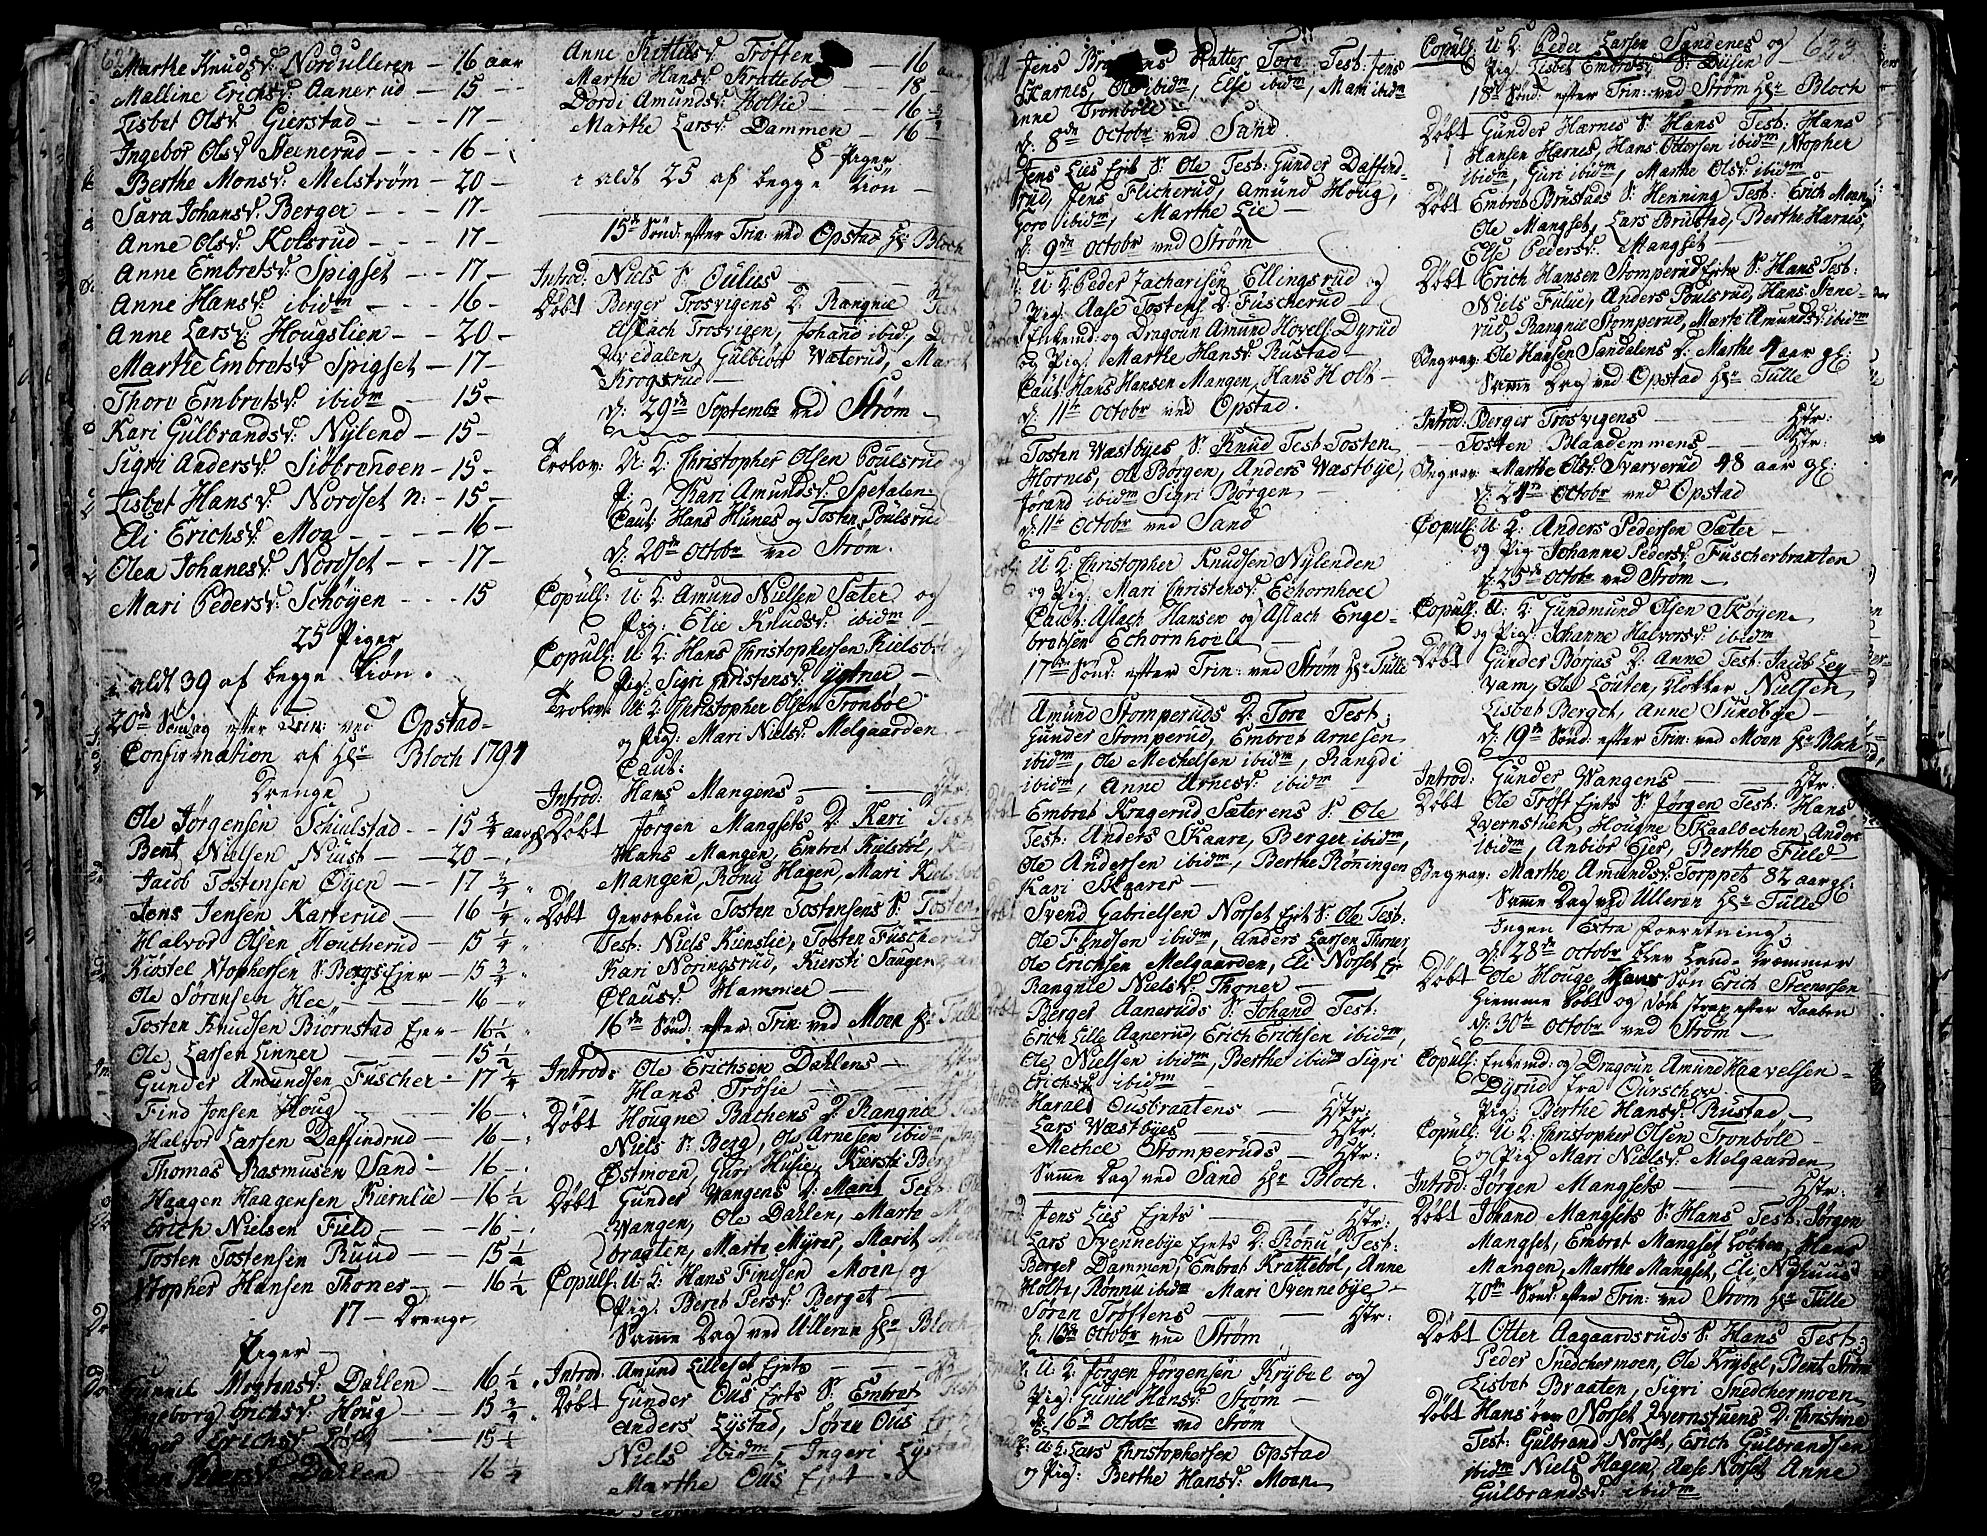 Marthe Knudsd: Nordulleren - 16 aar
Malline Erichsd: Aanerud - 15 -
Lisbet Olsd Gierstad - 17 -
Ingebor Olsd Steenerud - 16 -
Berthe Monsd: Melstrøm - 20 -
Sara Johansd: Berger - 17 -
Anne Olsd: Kolsrud - 17 -
Anne Embretsd: Spigset - 17 -
Anne Hansd: ibidm - 16 -
Anne Larsd: Hougslien - 20 -
Marthe Embretsd: Spigset - 17 -
Thore Embretsd: ibidm - 15 -
Kari Gulbrandsd: Nylend - 15 -
Sigri Andersd: Siøbrenden - 15 -
Lisbet Hansd: Nordset n: - 15 -
Eli Erichsd: Moa - 16 -
Olea Johanesd: Nordset - 17 -
Mari Pedersd: Schøyen - 15
25 Piger
i aldt 39 af begge Kiøn.
20de Søndag efter Trin: ved Opstad
Confirmation af Hr Bloch 1794
Drenge
Ole Jørgensen Schiulstad - 15 3/4 aar
Bent Nielsen Niust - 20 -
Jacob Tostensen Øyen - 17 3/4
Jens Jensen Karterud - 16 1/4
Halvor Olsen Houcherud - 15 1/4
Kiøstel Stophersen S: Bergs Ejer - 15 3/4
Ole Sørensen Hee - 16 -
Tosten Knudsen Biørnstad Eje - 16 1/2
Ole Larsen Linner - 15 1/2
Gunder Amundsen Fuscher - 17 1/4
Find Jonsen Houg - 16 -
Halvor Larsen Daffindrud - 16 -
Thomas Rasmusen Sand - 16 -
Haagen Haagensen Kiernlie - 16 1/2
Erich Nielsen Fuld - 16 -
Tosten Tostensen Ruud - 15 1/2
Stopher Hansen Thoner - 16 1/2
17 - Drenge
Piger
Gunnil Mortensd: Dahlen - 16 1/2
Ingeborg Erichsd: Houg - 15 3/4
Inger Erichsd - 15 1/2
Pedersd: Dahlen - 16 1/4
Anne Kittilsd: Trøften - 16 aar
Marthe Hansd: Krattebol - 18
Dordi Amundsd: Holtie - 16 3/4
Marthe Larsd: Dammen - 16 -
8 Piger
i aldt 25 af begge Kiøn -
15de Sønd: efter Trin: ved Opstad Hr Bloch
Introd: Niels S: Oulies - Hstr:
Døbt Berger Trosvigens D: Rangnie Test
Aslach Trosvigen, Johand ibid:, Dordi
Qvedalen, Gulbiør Wæterud, Marit
Krogsrud -
d: 29de Septembr ved Strøm -
Trolov: U: K: Christopher Olsen Poulsrud og
P: Kari Amundsd: Spetalen
Caut: Hans Hunes og Tosten Poulsrud
d: 20de Octobr ved Strøm.
Copull: U: K: Amund Nielsen Sæter og
Pig: Elie Knudsd: ibidm -
Copull: U: K: Hans Christophersen Kielsbøl
Pig: Sigri Christensd: Ygtner -
Trolov: U: K: Christopher Olsen Tronbøl
og Pig: Mari Nielsd: Melgaarden
Caut:
Introd: Hans Mangens - Hstr:
Døbt Jørgen Mangsets D: Kari Test
Hans Mangen, Embret Kielsbøl,
Mangen, Rønu Hagen, Mari Kielsbøl
Døbt Gevorben Tosten Tostensens S: Tosten
Test: Niels Kienslie, Tosten Fuscherud
Kari Noringsrud, Kiersti Saugen
Clausd: Hammer -
16de Sønd: efter Trin: ved Moen Hr Tulle
Introd: Ole Erichsen Dahlens -
Hans Trøsie -
Døbt Hougne Bachens D: Rangnie Test
Niels S: Berg, Ole Arnesen ibidm
Østmoen, Guro Husie, Kiersti Berg
Døbt Gunder Wangens D: Marit Test
Wangen, Ole Dahlen, Marte
Bragten, Marte Myrer, Marit Moen
Copull: U: K: Hans Findsen Moen og
Pig: Beret Persd: Berget -
Samme Dag ved Ulleren Hr Bloch
Introd: Amund Lilleset Ejets -
Døbt Gunder Ous Ejets S: Embret Test
Anders Lystad, Søren Ous
Niels ibidm, Ingeri Lystad,
Marthe Ous Ejet.
Jens Datter Tore Test: Jens
Skarnes, Ole ibidm, Else ibidm, Mari ibidm
Anne Tronbøle
d: 8de Octobr ved Sand
Jens Lies Ejet S: Ole Test: Gunder Daffind-
rud, Jens Flicherud, Amund Houg,
Goro ibidm, Marthe Lie -
d: 9de Octobr ved Strøm
U: K: Peder Zachariesen Ellingsrud og
Pig: Aase Tostens D: Fuscherud -
Enkemd: og Dragoun Amund Hovels: Dyrud
og Pig: Marthe Hansd: Rustad -
Caut: Hans Hansen Mangen, Hans Holt -
d: 11te Octobr ved Opstad.
Tosten Wæstbyes S: Knud Test: Tosten
Hornes, Ole Børgen, Anders Wæstbye,
Jørand ibidm Sigri Børgen -
d: 11te Octobr ved Sand
U: K: Christopher Knudsen Nylenden
og Pig: Mari Christensd: Echornhoel
Caut: Aslach Hansen og Aslach Enge-
bretsen Echornhoel -
17de Sønd: efter Trin: ved Strøm Hr Tulle
Amund Stomperuds D: Tore Test:
Gunder Stomperud, Embret Arnesen
ibidm, Ole Mechelsen ibidm, Rangdi
ibidm, Anne Arnesd: ibidm -
Embret Kragerud Sæterens S: Ole
Test: Anders Skaare, Berger ibidm,
Ole Andersen ibidm, Berthe Røningen
Kari Skaares -
Svend Gabrielsen Norset Ejet S: Ole Test:
Ole Findsen ibidm, Anders Larsen Thoner
Ole Erichsen Melgaarden, Eli Norset Ej
Rangnile Nielsd: Thoner -
Berger Aaneruds S: Johand Test:
Erich Lille Aanerud, Erich Erichsen ibidm,
Ole Nielsen ibidm, Berthe ibidm Sigri
Erichsd: ibidm -
Harald Ousbraatens - Hstr:
Lars Wæstbyes - Hstr:
Mechel Stomperuds - Hstr:
Samme Dag ved Sand Hr Bloch.
Jens Lies Ejets - Hstr:
Lars Svennebye Ejets D: Rønu, Test:
Berger Dammen, Embret Krattebøl, Anne
Holte, Rønnu ibidm Mari Svennebye -
Søren Trøftens - Hstr:
d: 16de Octobr ved Strøm
U: K: Jørgen Jørgensen Krybel og
Pig: Gunil Hansd: Strøm -
d: 16de Octobr ved Strøm
U: K: Lars Christophersen Opstad
og Pig: Berthe Hansd: Moen
633
Copull: U: K: Peder Larsen Sandenes og
Pig: Lisbet Embretsd: S: Dusen -
18de Sønd: efter Trin: ved Strøm Hr Bloch
Døbt Gunder Hærnes S: Hans Test: Hans
Hansen Hærnes, Hans Ottersen ibidm, Stopher
ibidm, Guri ibidm, Marthe Olsd: ibidm
Døbt Embret Brustads S: Henning Test: Erich Moen
Ole Mangset, Lars Brustad, Berthe Harnes,
Else Pedersd: Mangset -
Døbt Erich Hansen Stomperud Ejets S: Hans Test:
Niels Fulue, Anders Poulsrud, Hans Stene-
rud, Rangnie Stomperud, Marte Amundsd: ibidm
Begrav: Ole Hansen Sandalens D: Marthe 4 aar gl:
Samme Dag ved Opstad Hr Tulle
Introd: Berger Trosvigens - Hstr:
- Tosten Blaademmens - Hstr:
Begrav: Marthe Olsd: Svarverud 48 aar gl:
d: 24de Octobr ved Opstad
Copull: U: K: Anders Pedersen Sæter -
og Pig: Johanne Pedersd: Fuscherbraaten
d: 25de Octobr ved Strøm -
Copull: U: K: Gundmund Olsen Skøyen
og Pig: Johanne Halvorsd: ibidm
Døbt Gunder Børjus D: Anne Test: Jacob Ley-
ram, Ole Louten, Notter Nielsen
Lisbet Berget, Anne Sundbye -
d: 19de Sønd: efter Trin: ved Moen Hr Bloch
Introd: Gunder Wangens - Hstr:
Døbt Ole Trøft Ejets S: Jørgen Test: Hans
Qvernstuen, Hougne Skaalbechen, Anders
ibidm, Anbiør Ejer, Berthe Fuld
Begrav: Marthe Amundsd: Torppet 82 aar gl:
Samme Dag ved Ulleren Hr Tulle
Ingen Extra forretning;
d: 28de Octobr blev hend. Frommer
Døbt Ole Houge Hans Søn Erich Steenersen
hiemme døbt og døde strax efter Daaben
d: 30te Octobr ved Strøm -
Copull: Enkemd: og Dragoun Amund Haavelsen
Dyrud fra Ourschou
Pig: Berthe Hansd: Rustad -
Copull: U: K: Christopher Olsen Tronbøle -
og Pig: Mari Nielsd: Melgaarden
Introd: Jørgen Mangsets - Hstr:
Døbt Johand Mangsets S: Hans Test: Jørgen
Mangset, Embret Mangset Lochen, Hans
Mangen, Marthe Mangset, Eli Nyhuus
20de Sønd: efter Trin: ved Strøm Hr Tulle
Døbt Otter Aagaardsruds S: Hans Test:
Peder Snedchermoen, Ole Krybel, Bent Strøm
Lisbet Braaten, Sigri Snedchermoen
Døbt Hans Norset Qvernstuens D: Christine
Test: Gulbrand Norset, Erich Gulbrandsen
ibidm Niels Hagen, Aase Norset, Anne
Gulbrandsd: ibidm